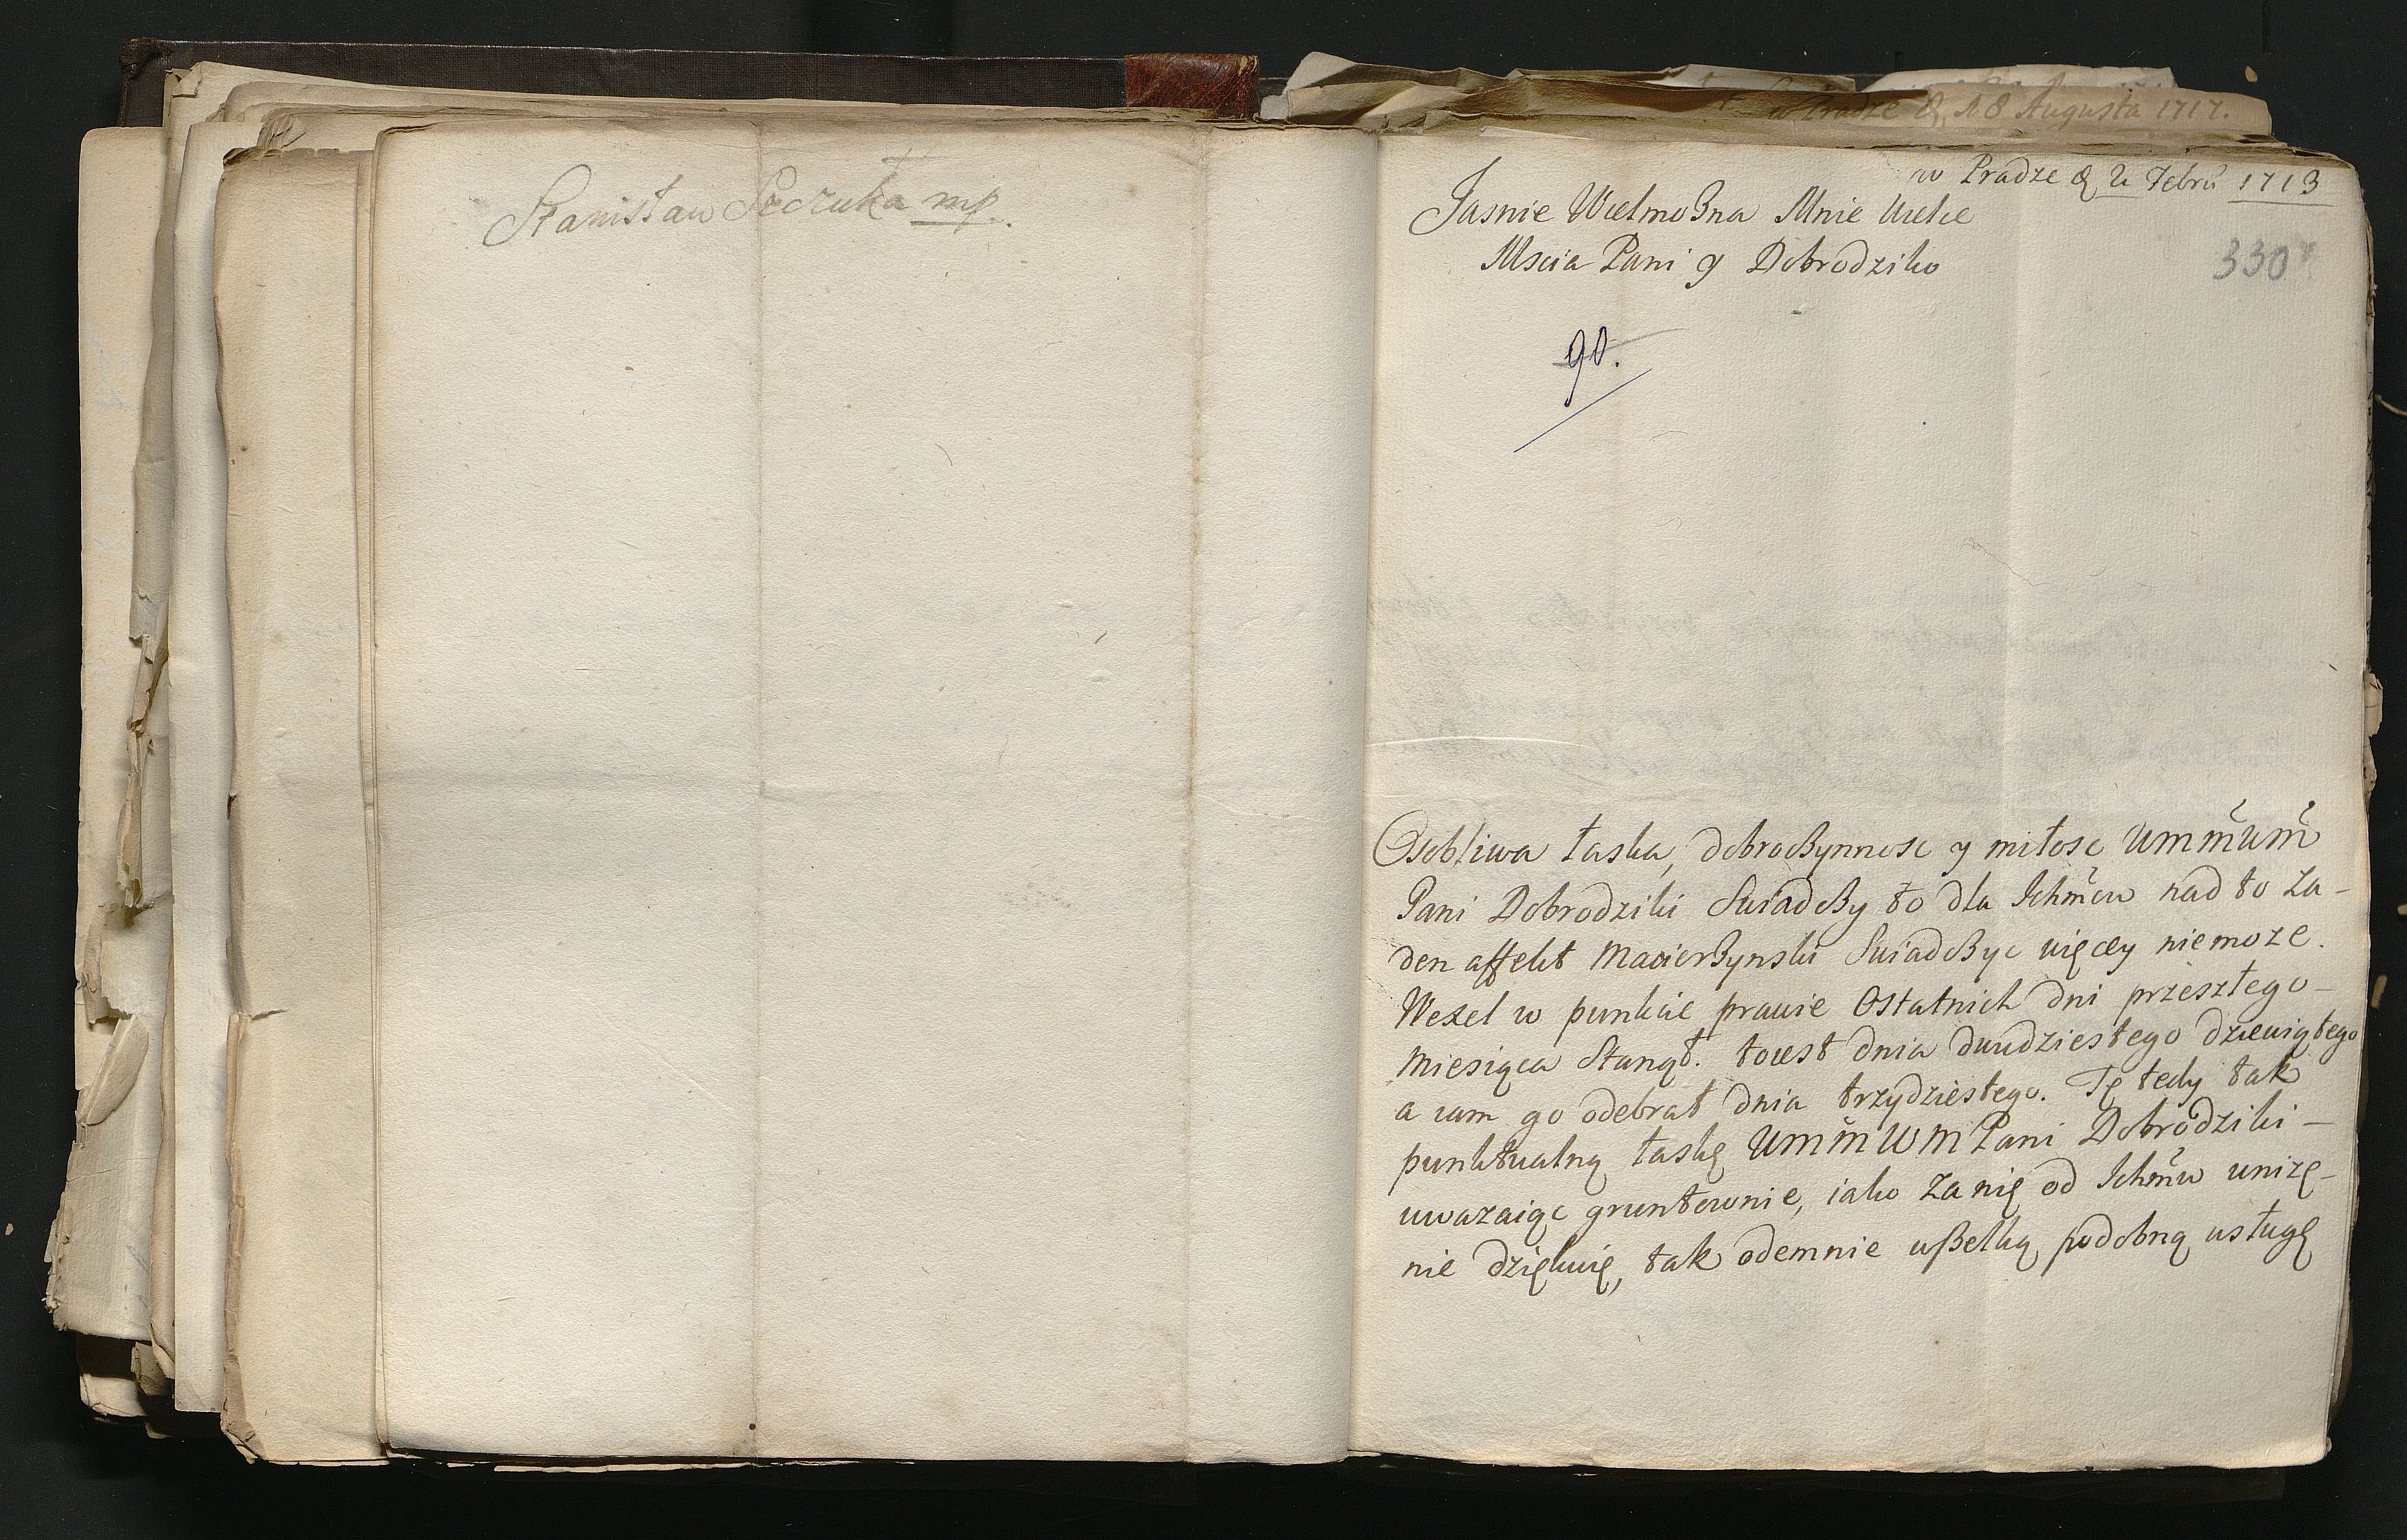 Stanisław Szczuka mp.
w Pradze d. 18 Augusta 1717.
w Pradze d 2 Febru 1713
Jasnie WielmoBna Mnie Wielce
Mscia Pani y Dobrodziko
330
90.
Osobliwa łaska, dobroczynnosc y miłosc Ummum
Pani Dobrodziki SwiadcBy to dla Ichmcow nad to Za-
den affekt MacierBynski SwiadcByc więcey niemoze.
Wexel w punkcie prawie Ostatnich dni przeszłego-
Miesiąca Stanął. toiest dnia dwudziestego dziewiątego
a iam go odebrał dnia trzydziestego. Tę tedy tak
punktualną łaskę UmmWM Pani Dobrodziki-
uwazaiąc gruntownie, iako Za nię od Ichmw unizę-
nie dziękuię, tak odemnie wszelką podobną usługę